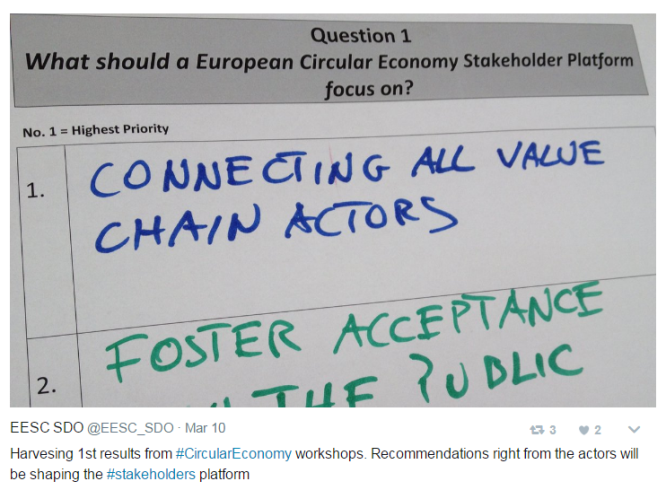 Question 1
What should a European Circular Economy Stakeholder Platform
focus on?
No. 1 = Highest Priority
1.
CONNECTING ALL VALUE
CHAIN ACTORS
2.
FOSTER ACCEPTANCE
THE PUBLIC
EESC SDO @EESC_SDO · Mar 10
3
2
Harvesing 1st results from #CircularEconomy workshops. Recommendations right from the actors will
be shaping the #stakeholders platform